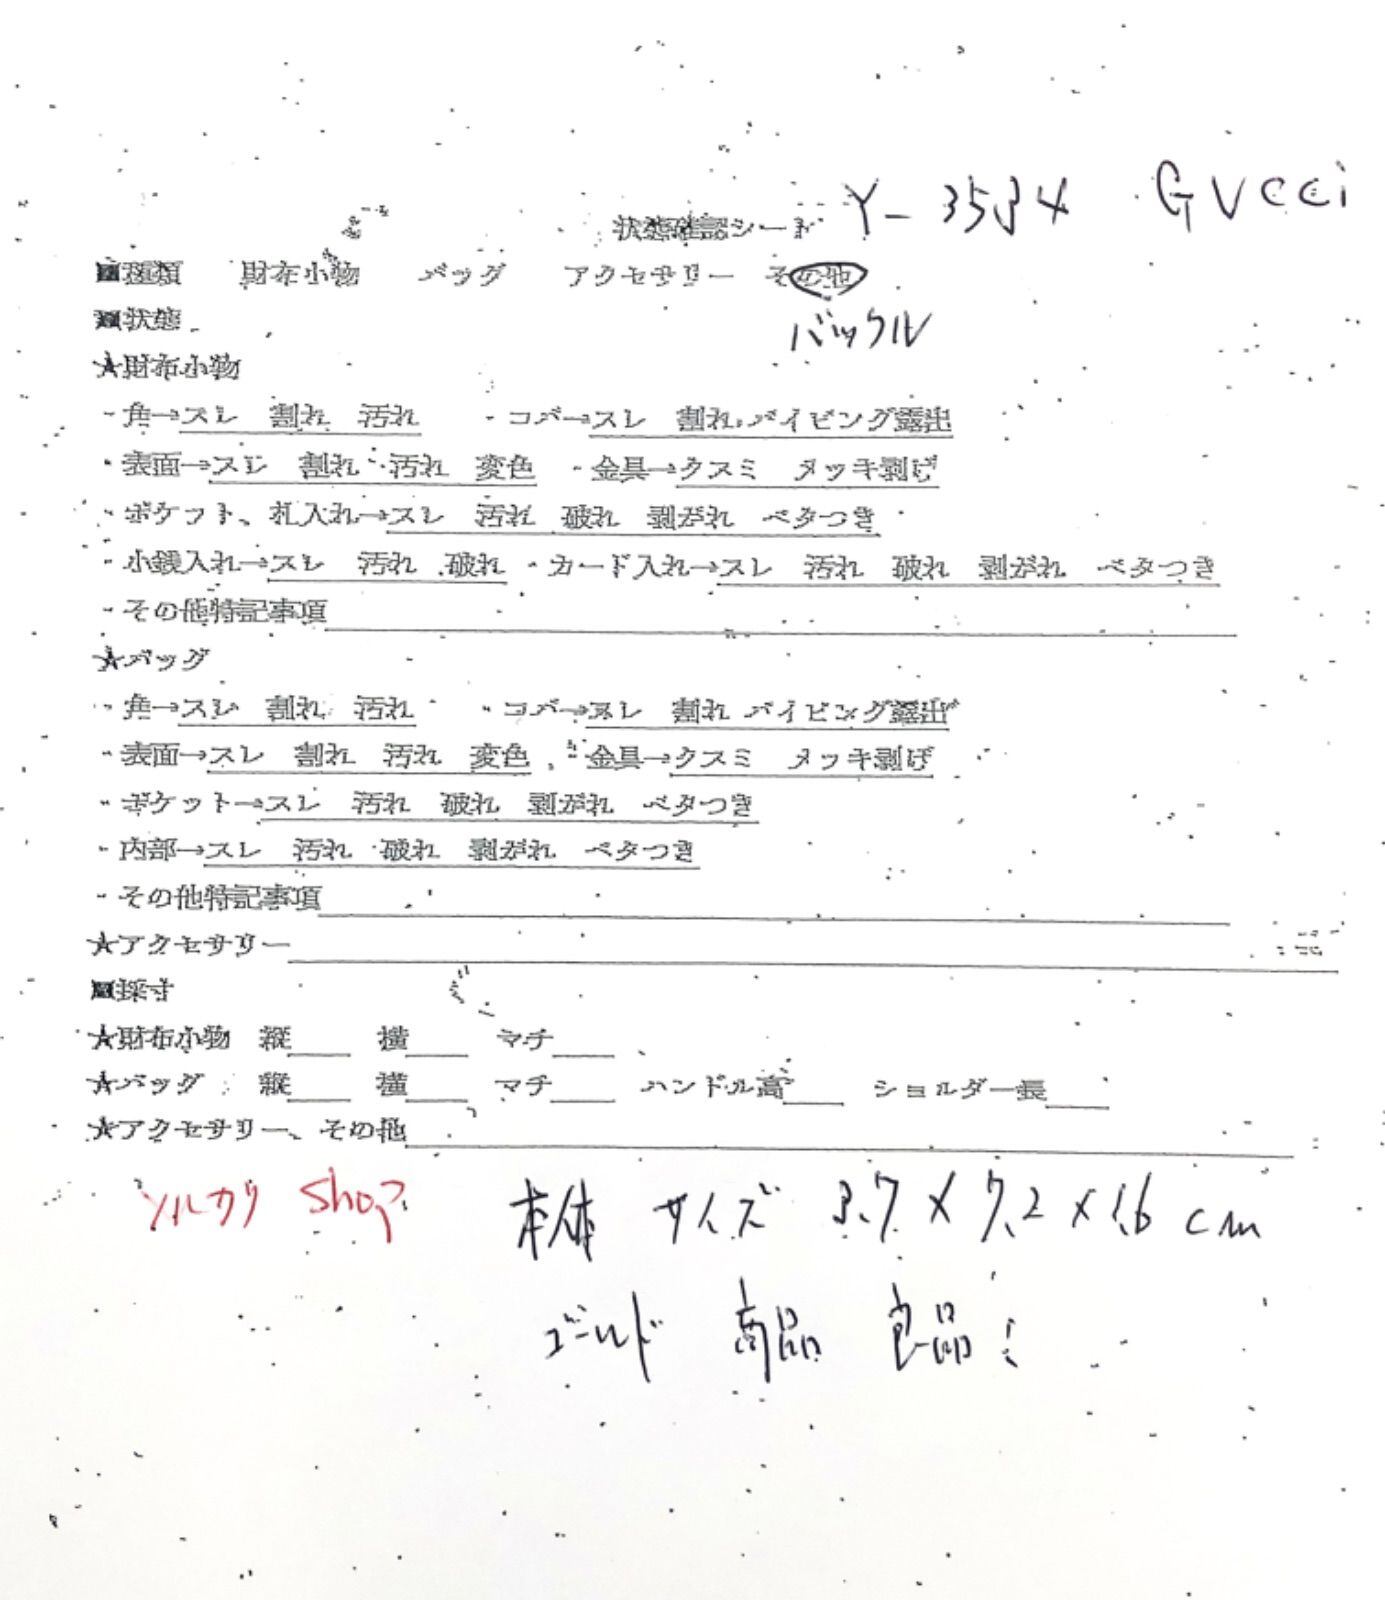 状態確認シート Y-3534 GUCCI
■種類 財布小物 バッグ アクセサリー その他
バックル
■状態
★財布小物
・角→スレ 割れ 汚れ ・コバ→スレ 割れ パイピング露出
・表面→スレ 割れ 汚れ 変色 ・金具→クスミ メッキ剥げ
・ポケット、札入れ→スレ 汚れ 破れ 剥がれ ベタつき
・小銭入れ→スレ 汚れ 破れ ・カード入れ→スレ 汚れ 破れ 剥がれ ベタつき
・その他特記事項
★バッグ
・角→スレ 割れ 汚れ ・コバ→スレ 割れ パイピング露出
・表面→スレ 割れ 汚れ 変色 ・金具→クスミ メッキ剥げ
・ポケット→スレ 汚れ 破れ 剥がれ ベタつき
・内部→スレ 汚れ 破れ 剥がれ ベタつき
・その他特記事項
★アクセサリー
■採寸
★財布小物 縦 横 マチ
★バッグ 縦 横 マチ ハンドル高 ショルダー長
★アクセサリー、その他
メルカリ Shop 本体 サイズ 3.7×7.2×1.6cm
ゴールド 商品 良品!